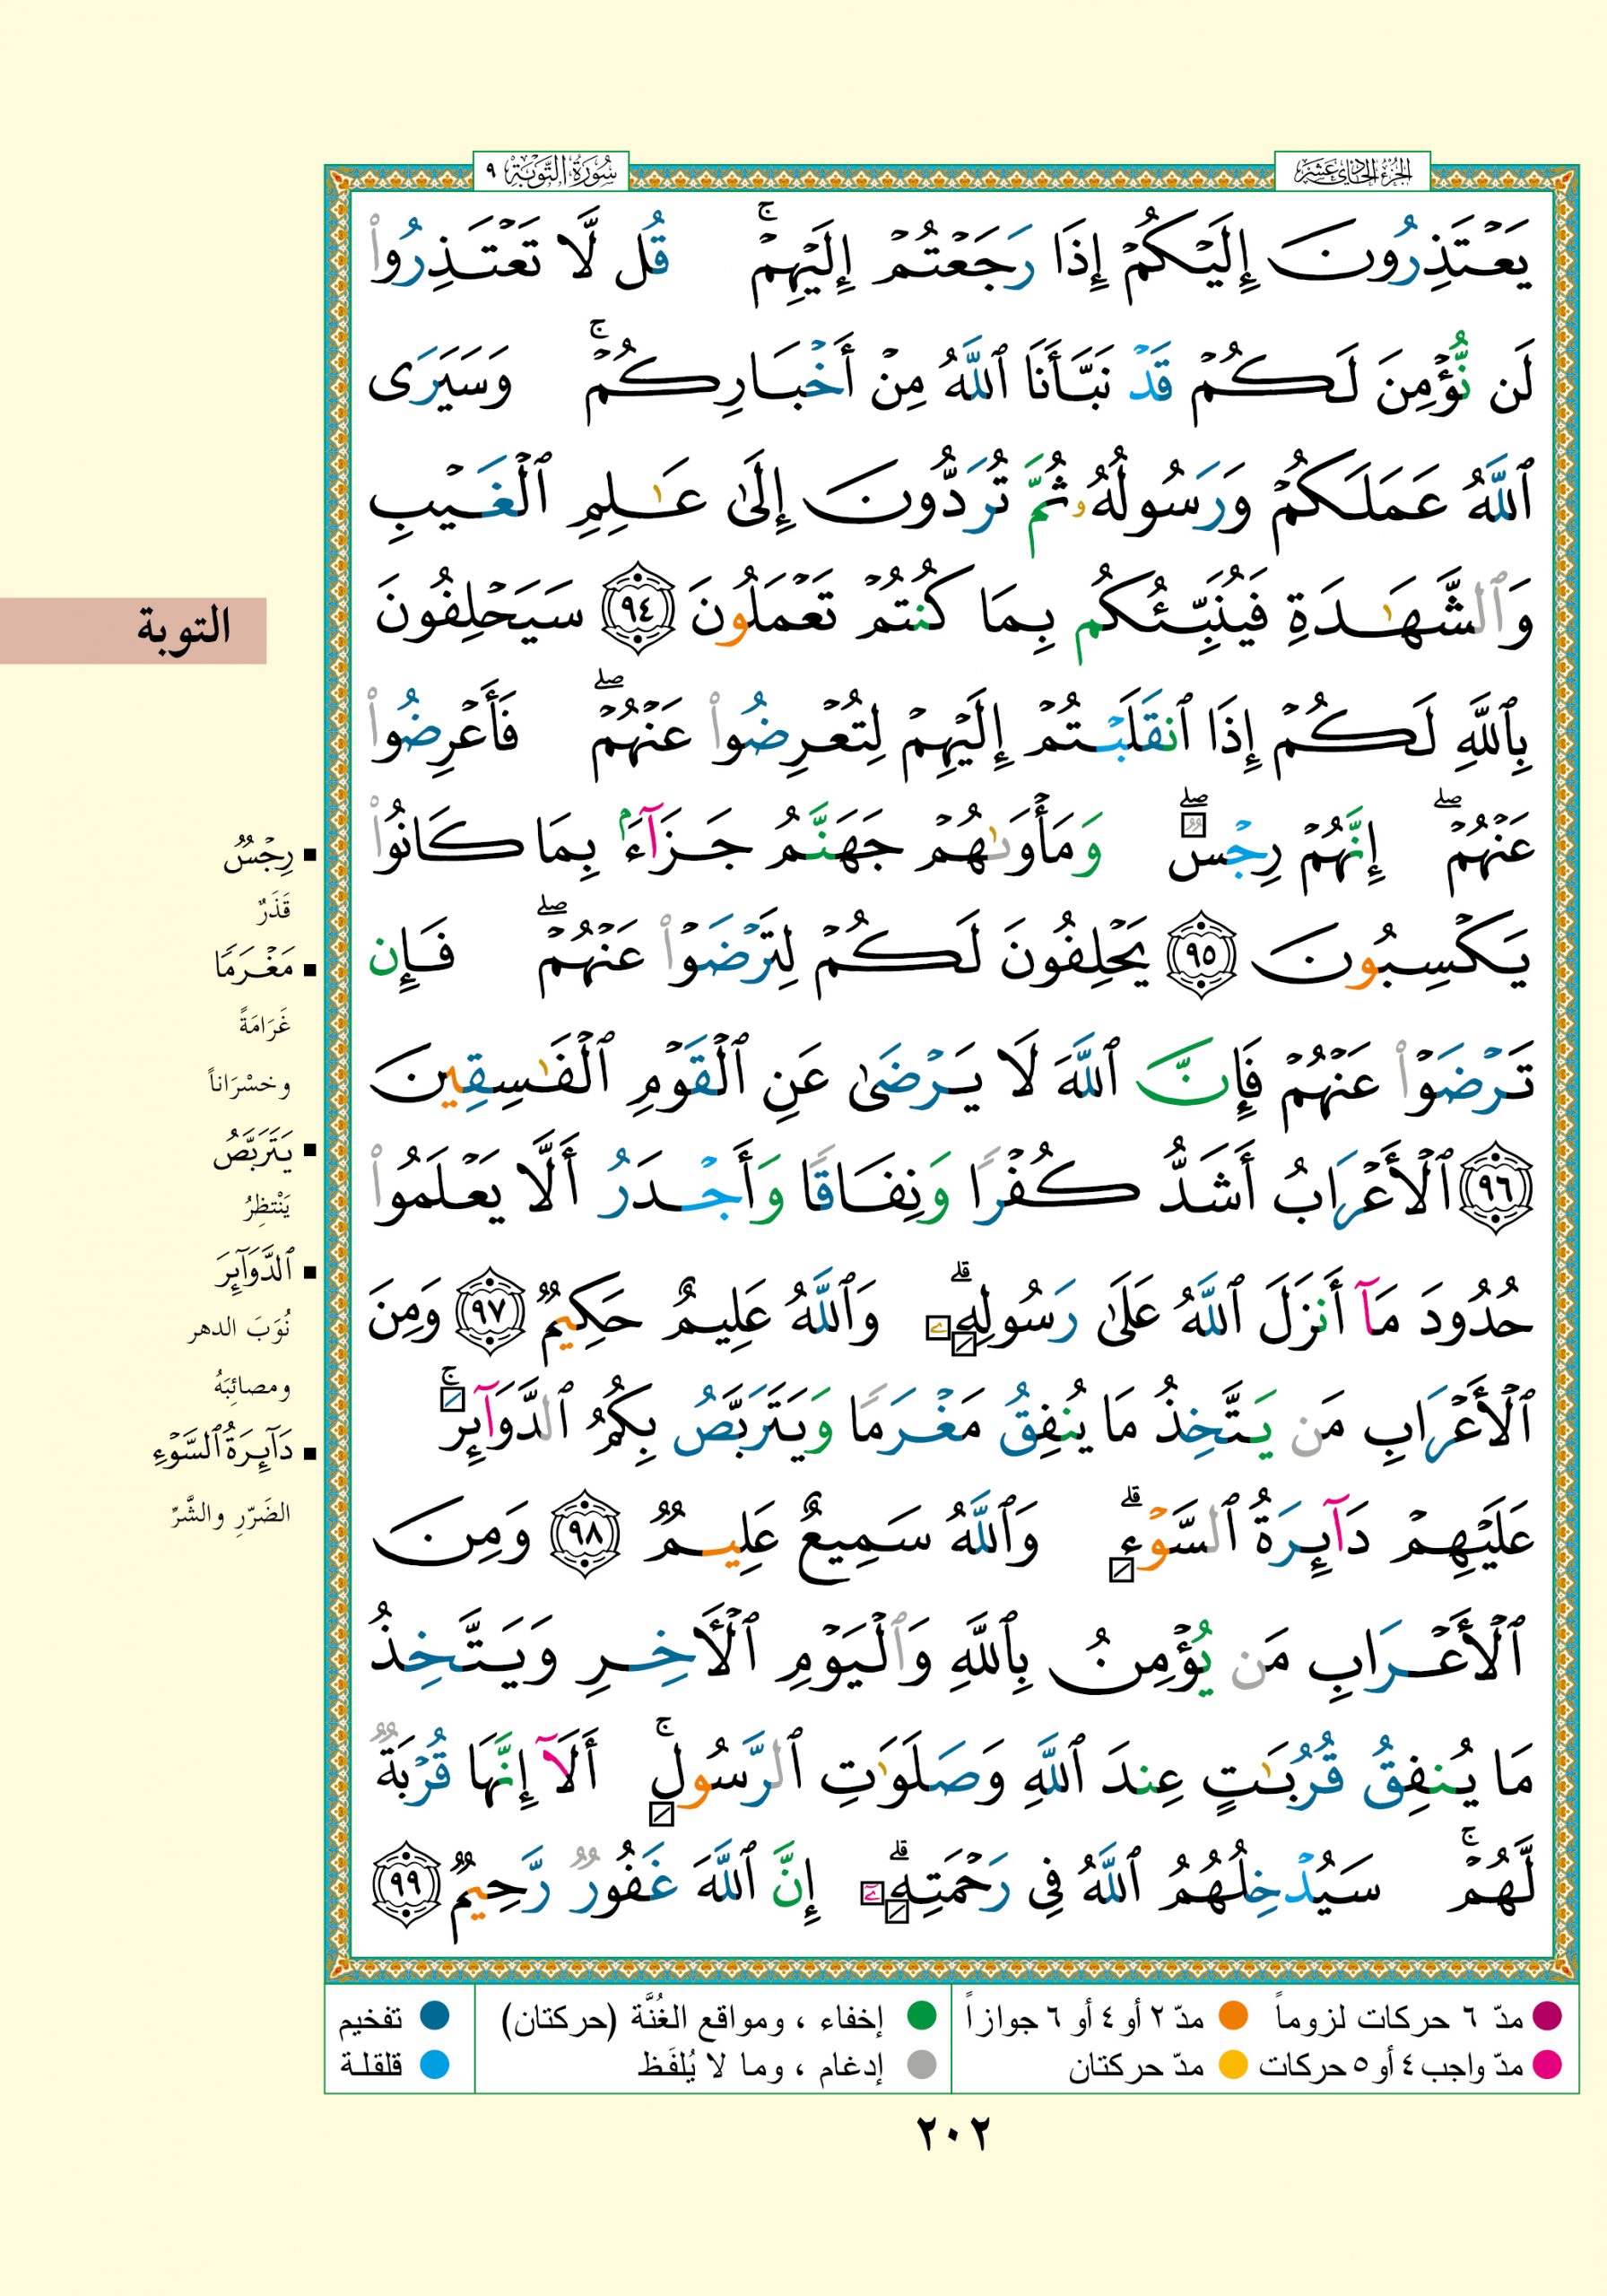 الجزء الحادي عشر
سورة التوبة ٩
يَعْتَذِرُونَ إِلَيْكُمْ إِذَا رَجَعْتُمْ إِلَيْهِمْ ۚ قُل لَّا تَعْتَذِرُوا۟
لَن نُّؤْمِنَ لَكُمْ قَدْ نَبَّأَنَا ٱللَّهُ مِنْ أَخْبَارِكُمْ ۚ وَسَيَرَى
ٱللَّهُ عَمَلَكُمْ وَرَسُولُهُۥ ثُمَّ تُرَدُّونَ إِلَىٰ عَـٰلِمِ ٱلْغَيْبِ
وَٱلشَّهَـٰدَةِ فَيُنَبِّئُكُم بِمَا كُنتُمْ تَعْمَلُونَ ٩٤ سَيَحْلِفُونَ
بِٱللَّهِ لَكُمْ إِذَا ٱنقَلَبْتُمْ إِلَيْهِمْ لِتُعْرِضُوا۟ عَنْهُمْ ۖ فَأَعْرِضُوا۟
عَنْهُمْ ۖ إِنَّهُمْ رِجْسٌ ۖ وَمَأْوَىٰهُمْ جَهَنَّمُ جَزَآءًۢ بِمَا كَانُوا۟
يَكْسِبُونَ ٩٥ يَحْلِفُونَ لَكُمْ لِتَرْضَوْا۟ عَنْهُمْ ۖ فَإِن
تَرْضَوْا۟ عَنْهُمْ فَإِنَّ ٱللَّهَ لَا يَرْضَىٰ عَنِ ٱلْقَوْمِ ٱلْفَـٰسِقِينَ
٩٦ ٱلْأَعْرَابُ أَشَدُّ كُفْرًا وَنِفَاقًا وَأَجْدَرُ أَلَّا يَعْلَمُوا۟
حُدُودَ مَآ أَنزَلَ ٱللَّهُ عَلَىٰ رَسُولِهِۦ ۗ وَٱللَّهُ عَلِيمٌ حَكِيمٌ ٩٧ وَمِنَ
ٱلْأَعْرَابِ مَن يَتَّخِذُ مَا يُنفِقُ مَغْرَمًا وَيَتَرَبَّصُ بِكُمُ ٱلدَّوَآئِرَ ۚ
عَلَيْهِمْ دَآئِرَةُ ٱلسَّوْءِ ۗ وَٱللَّهُ سَمِيعٌ عَلِيمٌ ٩٨ وَمِنَ
ٱلْأَعْرَابِ مَن يُؤْمِنُ بِٱللَّهِ وَٱلْيَوْمِ ٱلْـَٔاخِرِ وَيَتَّخِذُ
مَا يُنفِقُ قُرُبَـٰتٍ عِندَ ٱللَّهِ وَصَلَوَٰتِ ٱلرَّسُولِ ۚ أَلَآ إِنَّهَا قُرْبَةٌ
لَّهُمْ ۚ سَيُدْخِلُهُمُ ٱللَّهُ فِى رَحْمَتِهِۦٓ ۗ إِنَّ ٱللَّهَ غَفُورٌ رَّحِيمٌ ٩٩
التوبة
▪ رِجْسٌ
قَذَرٌ
▪ مَغْرَمًا
غَرَامَةً
وخسْرَاناً
▪ يَتَرَبَّصُ
يَنْتظِرُ
▪ ٱلدَّوَآئِرَ
نُوَبَ الدهر
ومصائِبَهُ
▪ دَآئِرَةُ ٱلسَّوْءِ
الضَرّرِ والشَّرِّ
مدّ ٦ حركات لزوماً ● مدّ ٢ أو ٤ أو ٦ جوازاً
مدّ واجب ٤ أو ٥ حركات ● مدّ حركتان
إخفاء ، ومواقع الغُنَّة (حركتان)
إدغام ، وما لا يُلفَظ
تفخيم
قلقلة
٢٠٢